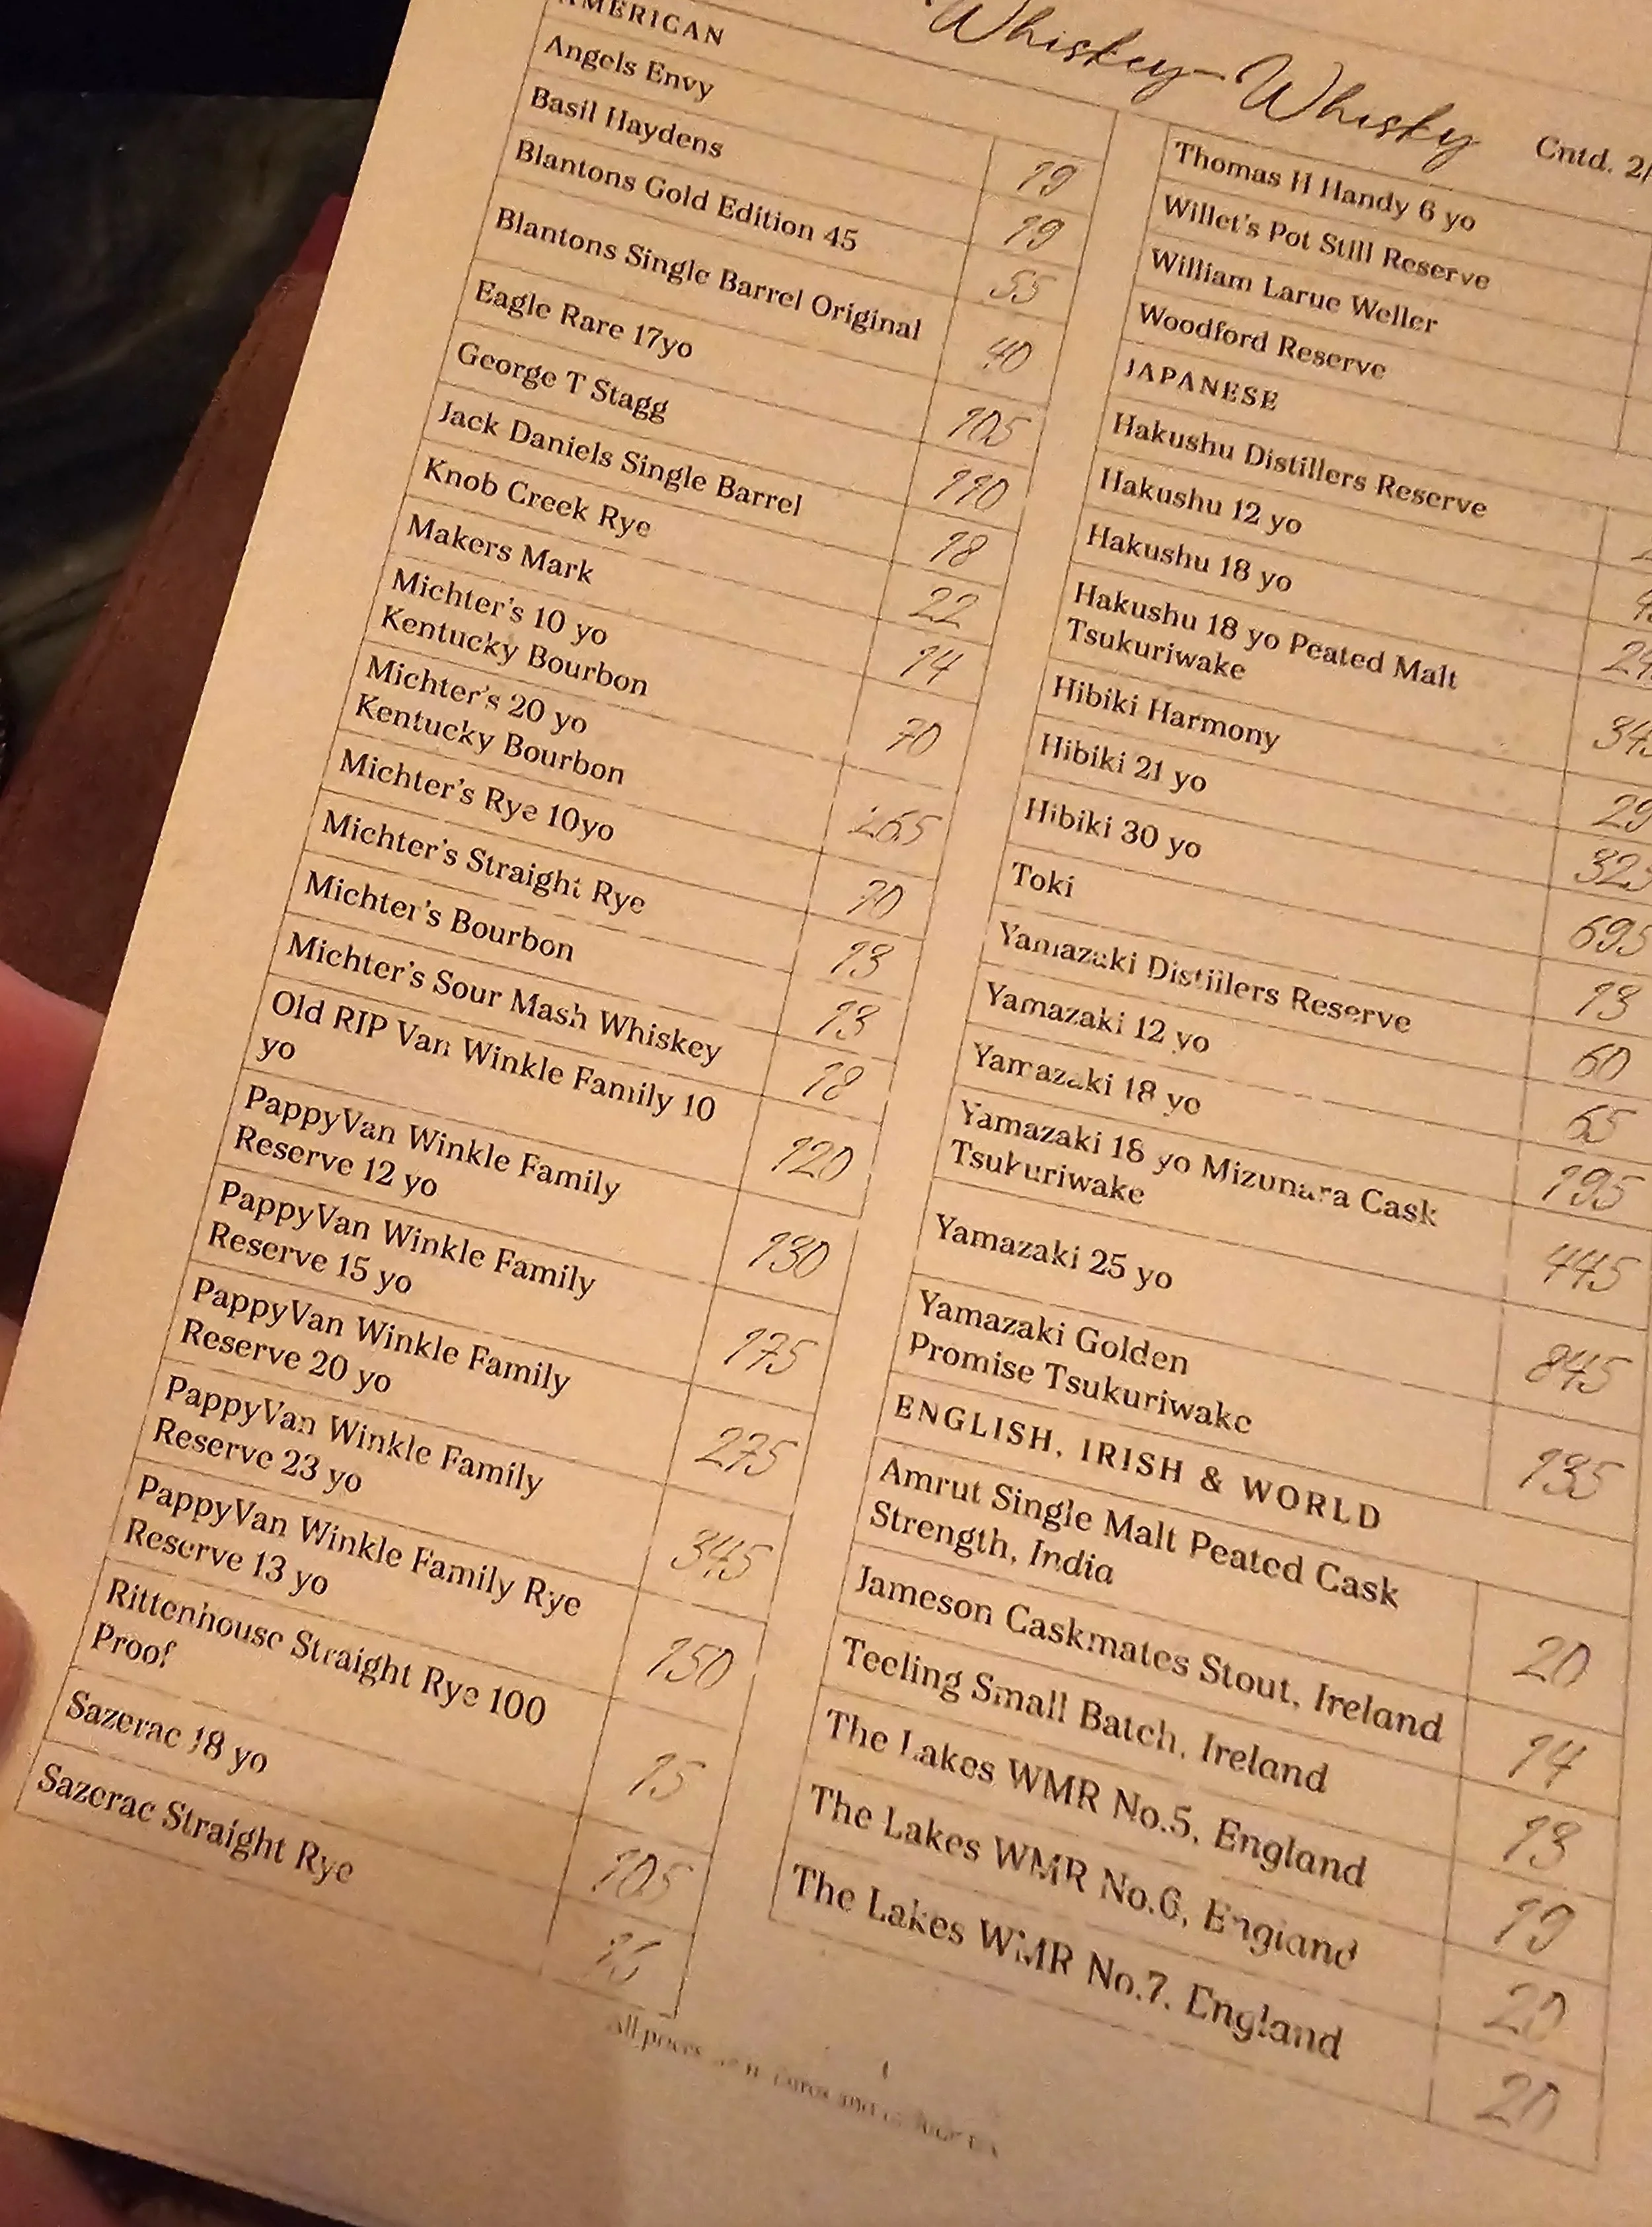 Whiskey-Whisky
Cntd. 2/
AMERICAN
Angels Envy 19
Basil Haydens 19
Blantons Gold Edition 45 55
Blantons Single Barrel Original 40
Eagle Rare 17yo 105
George T Stagg 110
Jack Daniels Single Barrel 18
Knob Creek Rye 22
Makers Mark 14
Michter's 10 yo
Kentucky Bourbon 70
Michter's 20 yo
Kentucky Bourbon 265
Michter's Rye 10yo 70
Michter's Straight Rye 13
Michter's Bourbon 13
Michter's Sour Mash Whiskey 18
Old RIP Van Winkle Family 10
yo 120
PappyVan Winkle Family
Reserve 12 yo 130
PappyVan Winkle Family
Reserve 15 yo 175
PappyVan Winkle Family
Reserve 20 yo 275
PappyVan Winkle Family
Reserve 23 yo 345
PappyVan Winkle Family Rye
Reserve 13 yo 150
Rittenhouse Straight Rye 100
Proof 15
Sazerac 18 yo 105
Sazerac Straight Rye
Thomas H Handy 6 yo
Willet's Pot Still Reserve
William Larue Weller
Woodford Reserve
JAPANESE
Hakushu Distillers Reserve
Hakushu 12 yo
Hakushu 18 yo
Hakushu 18 yo Peated Malt
Tsukuriwake
Hibiki Harmony 29
Hibiki 21 yo
Hibiki 30 yo 695
Toki 13
Yamazaki Distillers Reserve 60
Yamazaki 12 yo 65
Yamazaki 18 yo 195
Yamazaki 18 yo Mizunara Cask
Tsukuriwake 445
Yamazaki 25 yo 845
Yamazaki Golden
Promise Tsukuriwake 135
ENGLISH, IRISH & WORLD
Amrut Single Malt Peated Cask
Strength, India 20
Jameson Caskmates Stout, Ireland 14
Teeling Small Batch, Ireland 13
The Lakes WMR No.5, England 19
The Lakes WMR No.6, England 20
The Lakes WMR No.7, England 20
All prices